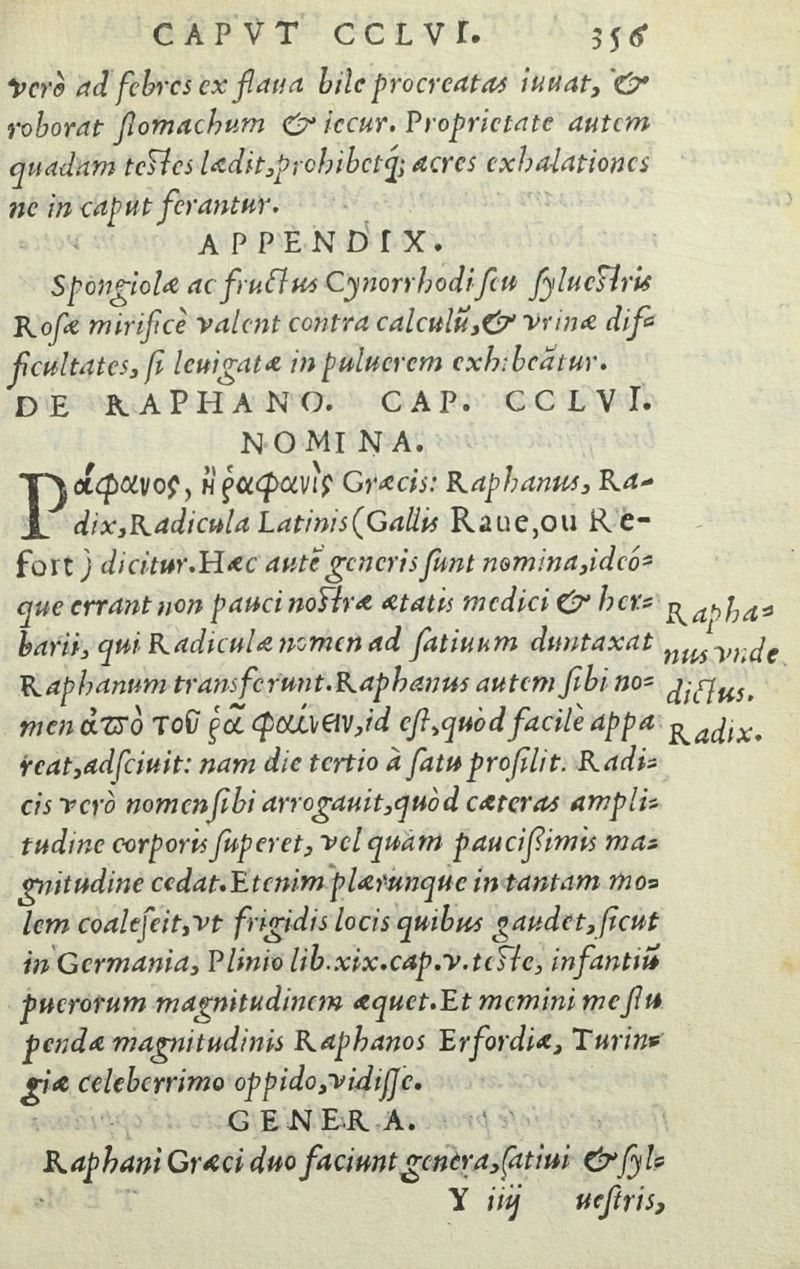 CAPVT CCLVI. 356
verò ad febres ex flaua bile procreatas iuuat, &
roborat ſtomachum & iecur. Proprietate autem
quadam teſtes lædit, prohibetq́; acres exhalationes
ne in caput ferantur.
APPENDIX.
Spongiolæ ac fructus Cynorrhodi ſeu ſylueſtris
Roſæ mirificè valent contra calculũ, & vrinæ dif-
ficultates, ſi leuigatæ in puluerem exhibeãtur.
DE RAPHANO. CAP. CCLVI.
NOMINA.
Ράφανος, ἢ ῥαφανὶς Græcis: Raphanus, Ra-
dix, Radicula Latinis (Gallis Raue, ou Re-
fort) dicitur. Hæc autẽ generis ſunt nomina, ideó-
que errant non pauci noſtræ ætatis medici & her-
barii, qui Radiculæ nomen ad ſatiuum duntaxat
Raphanum transferunt. Raphanus autem ſibi no-
men ἀπὸ τοῦ ῥᾶ φαίνειν, id eſt, quòd facilè appa
reat, adſciuit: nam die tertio à ſatu proſilit. Radi-
cis verò nomen ſibi arrogauit, quòd cæteras ampli-
tudine corporis ſuperet, vel quàm pauciſsimis ma-
gnitudine cedat. Etenim plærunque in tantam mo-
lem coaleſcit, vt frigidis locis quibus gaudet, ſicut
in Germania, Plinio lib. xix. cap. v. teſte, infantiũ
puerorum magnitudinem æquet. Et memini me ſtu
pendæ magnitudinis Raphanos Erfordiæ, Turin-
giæ celeberrimo oppido, vidiſſe.
GENERA.
Raphani Græci duo faciunt genera, ſatiui & ſyl-
Y iiij ueſtris,
Rapha-
nus vnde
dictus.
Radix.